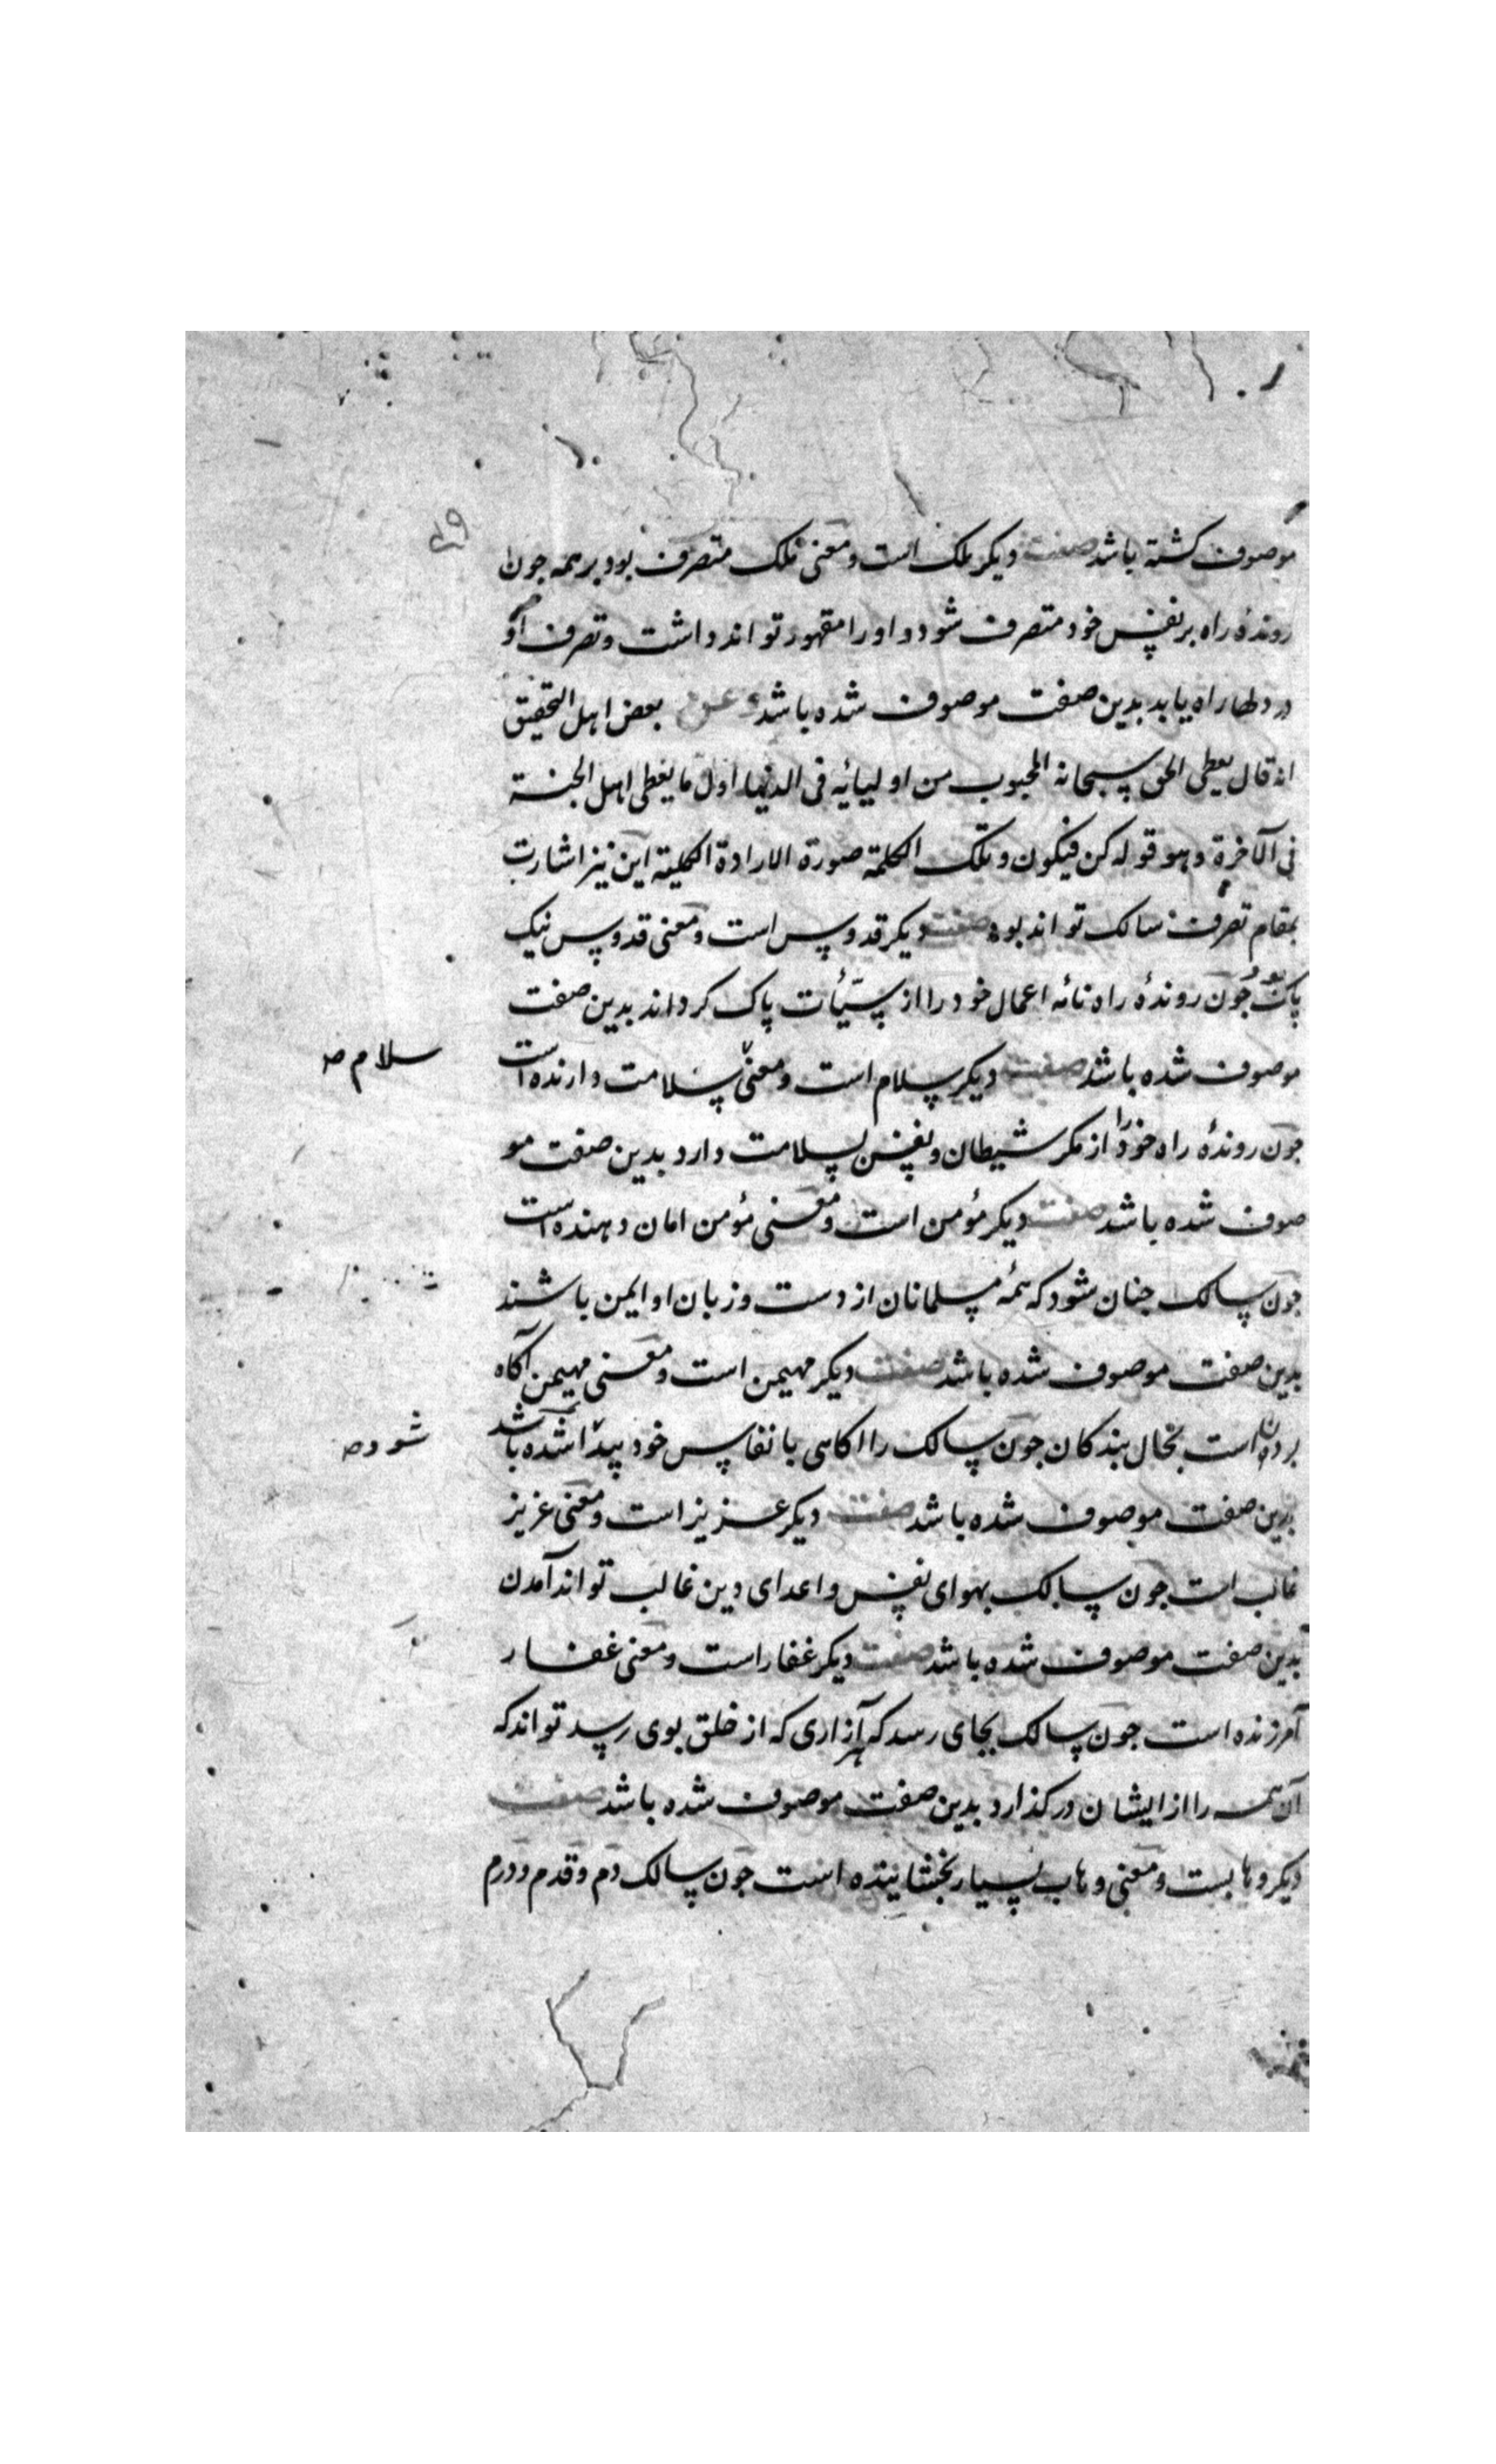 موصوف کشته باشد صفت دیکر ملک است و معنی ملک متصرف بود بر همه جون
روندهٔ راه بر نفس خود متصرف شود و او را مقهور تواند داشت و تصرف او
در دلها راه یابد بدین صفت موصوف شده باشد و عن بعض اهل التحقیق
انه قال یعطی الحق سبحانه المحبوب من اولیائه فی الدنیا اول ما یعطی اهل الجنة
فی الآخرة و هو قوله کن فیکون و تلک الکلمة صورة الارادة الکلیة این نیز اشارت
بمقام تصرف سالک تواند بود صفت دیکر قدوس است و معنی قدوس نیک
پاک بود جون روندهٔ راه نامه اعمال خود را از سیّئات پاک کرداند بدین صفت
موصوف شده باشد صفت دیکر سلام است و معنی سلامت دارنده است
سلام صه
جون روندهٔ راه خود را از مکر شیطان و نفس بسلامت دارد بدین صفت مو
صوف شده باشد صفت دیکر مؤمن است و معنی مؤمن امان دهنده است
جون سالک جنان شود که همهٔ مسلمانان از دست و زبان او ایمن باشند
بدین صفت موصوف شده باشد صفت دیکر مهیمن است و معنی مهیمن آکاه
است بحال بندکان جون سالک را اکاهی بانفاس خود پیدا شده باشد
شود صه
بدین صفت موصوف شده باشد صفت دیکر عزیز است و معنی عزیز
غالب است جون سالک بهوای نفس و اعدای دین غالب تواند آمدن
بدین صفت موصوف شده باشد صفت دیکر غفار است و معنی غفار
آمرزنده است جون سالک بجای رسد که هر آزاری که از خلق بوی رسد تواند که
آن همه را از ایشان درکذارد بدین صفت موصوف شده باشد صفت
دیکر وهابست و معنی وهاب بسیار بخشاینده است جون سالک دم و قدم و درم